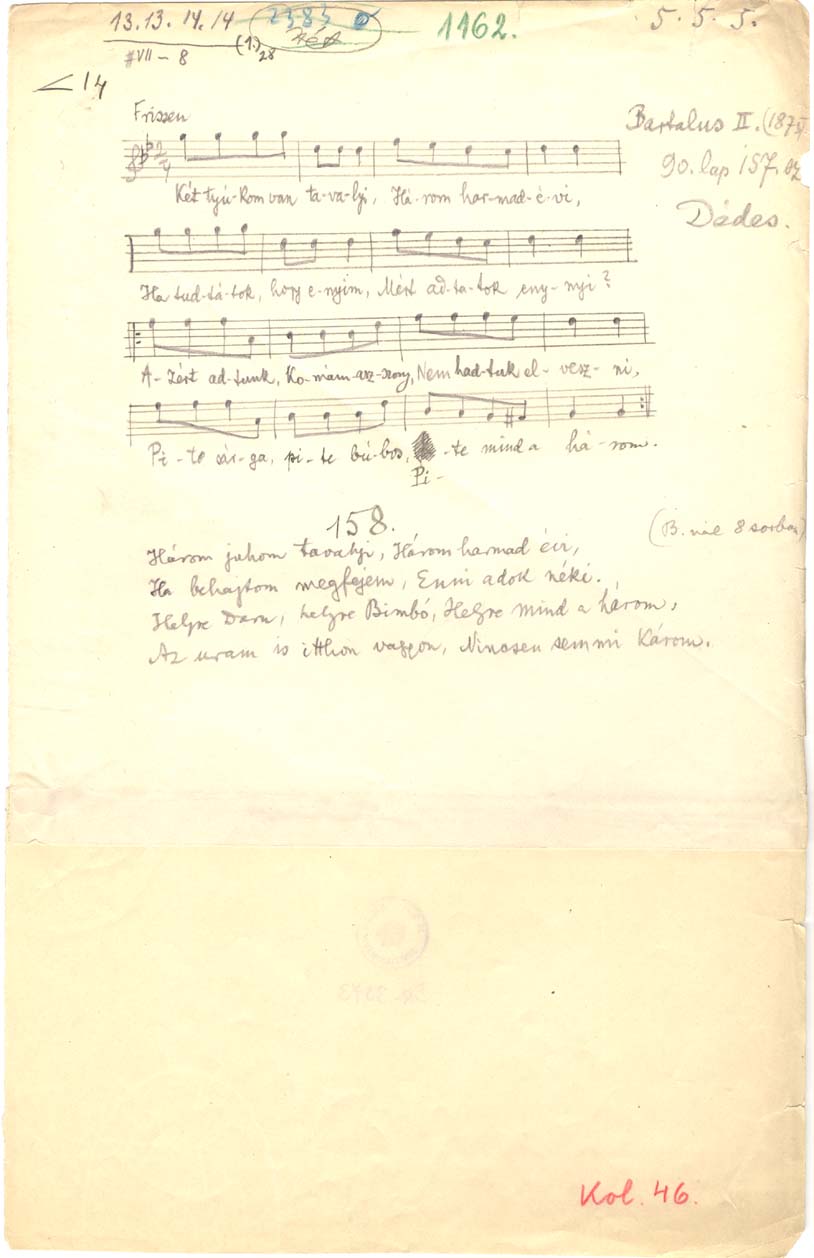 13.13.14.14 2383 1162. 5. 5. 5.
#VII – 8 (1.) 28
< 14
Frissen Bartalus II. (1875)
90. lap 157. sz
Dédes.
2/4
Két tyú-kom van ta-va-lyi, Há-rom har-mad-é-vi,
Ha tud-tá-tok, hogy e-nyim, Mért ad-ta-tok eny-nyi?
A-zért ad-tunk, Ko-mám-asz-szony, Nem had-tuk el-vesz-ni,
Pi-te sár-ga, pi-te bú-bos, -te mind a há-rom.
Pi-
158.
(B. nál 8 sorban)
Három juhom tavalyi, Három harmad évi,
Ha behajtom megfejem, Enni adok néki.
Helyre Daru, helyre Bimbó, Helyre mind a három,
Az uram is itthon vagyon, Nincsen semmi Károm.
Kol. 46.